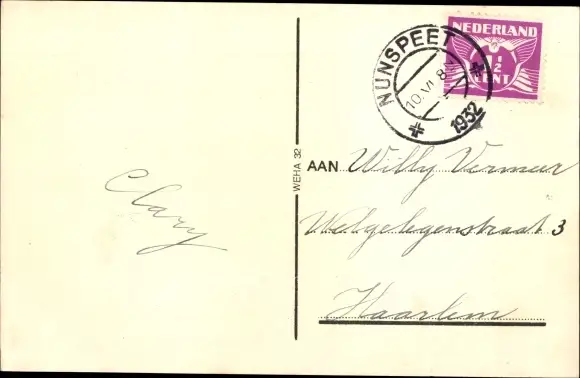 NEDERLAND
1½
CENT
NUNSPEET
10.VI.8
1932
WEHA 32
AAN Willy Vermeer
Welgelegenstraat 3
Haarlem
Clary